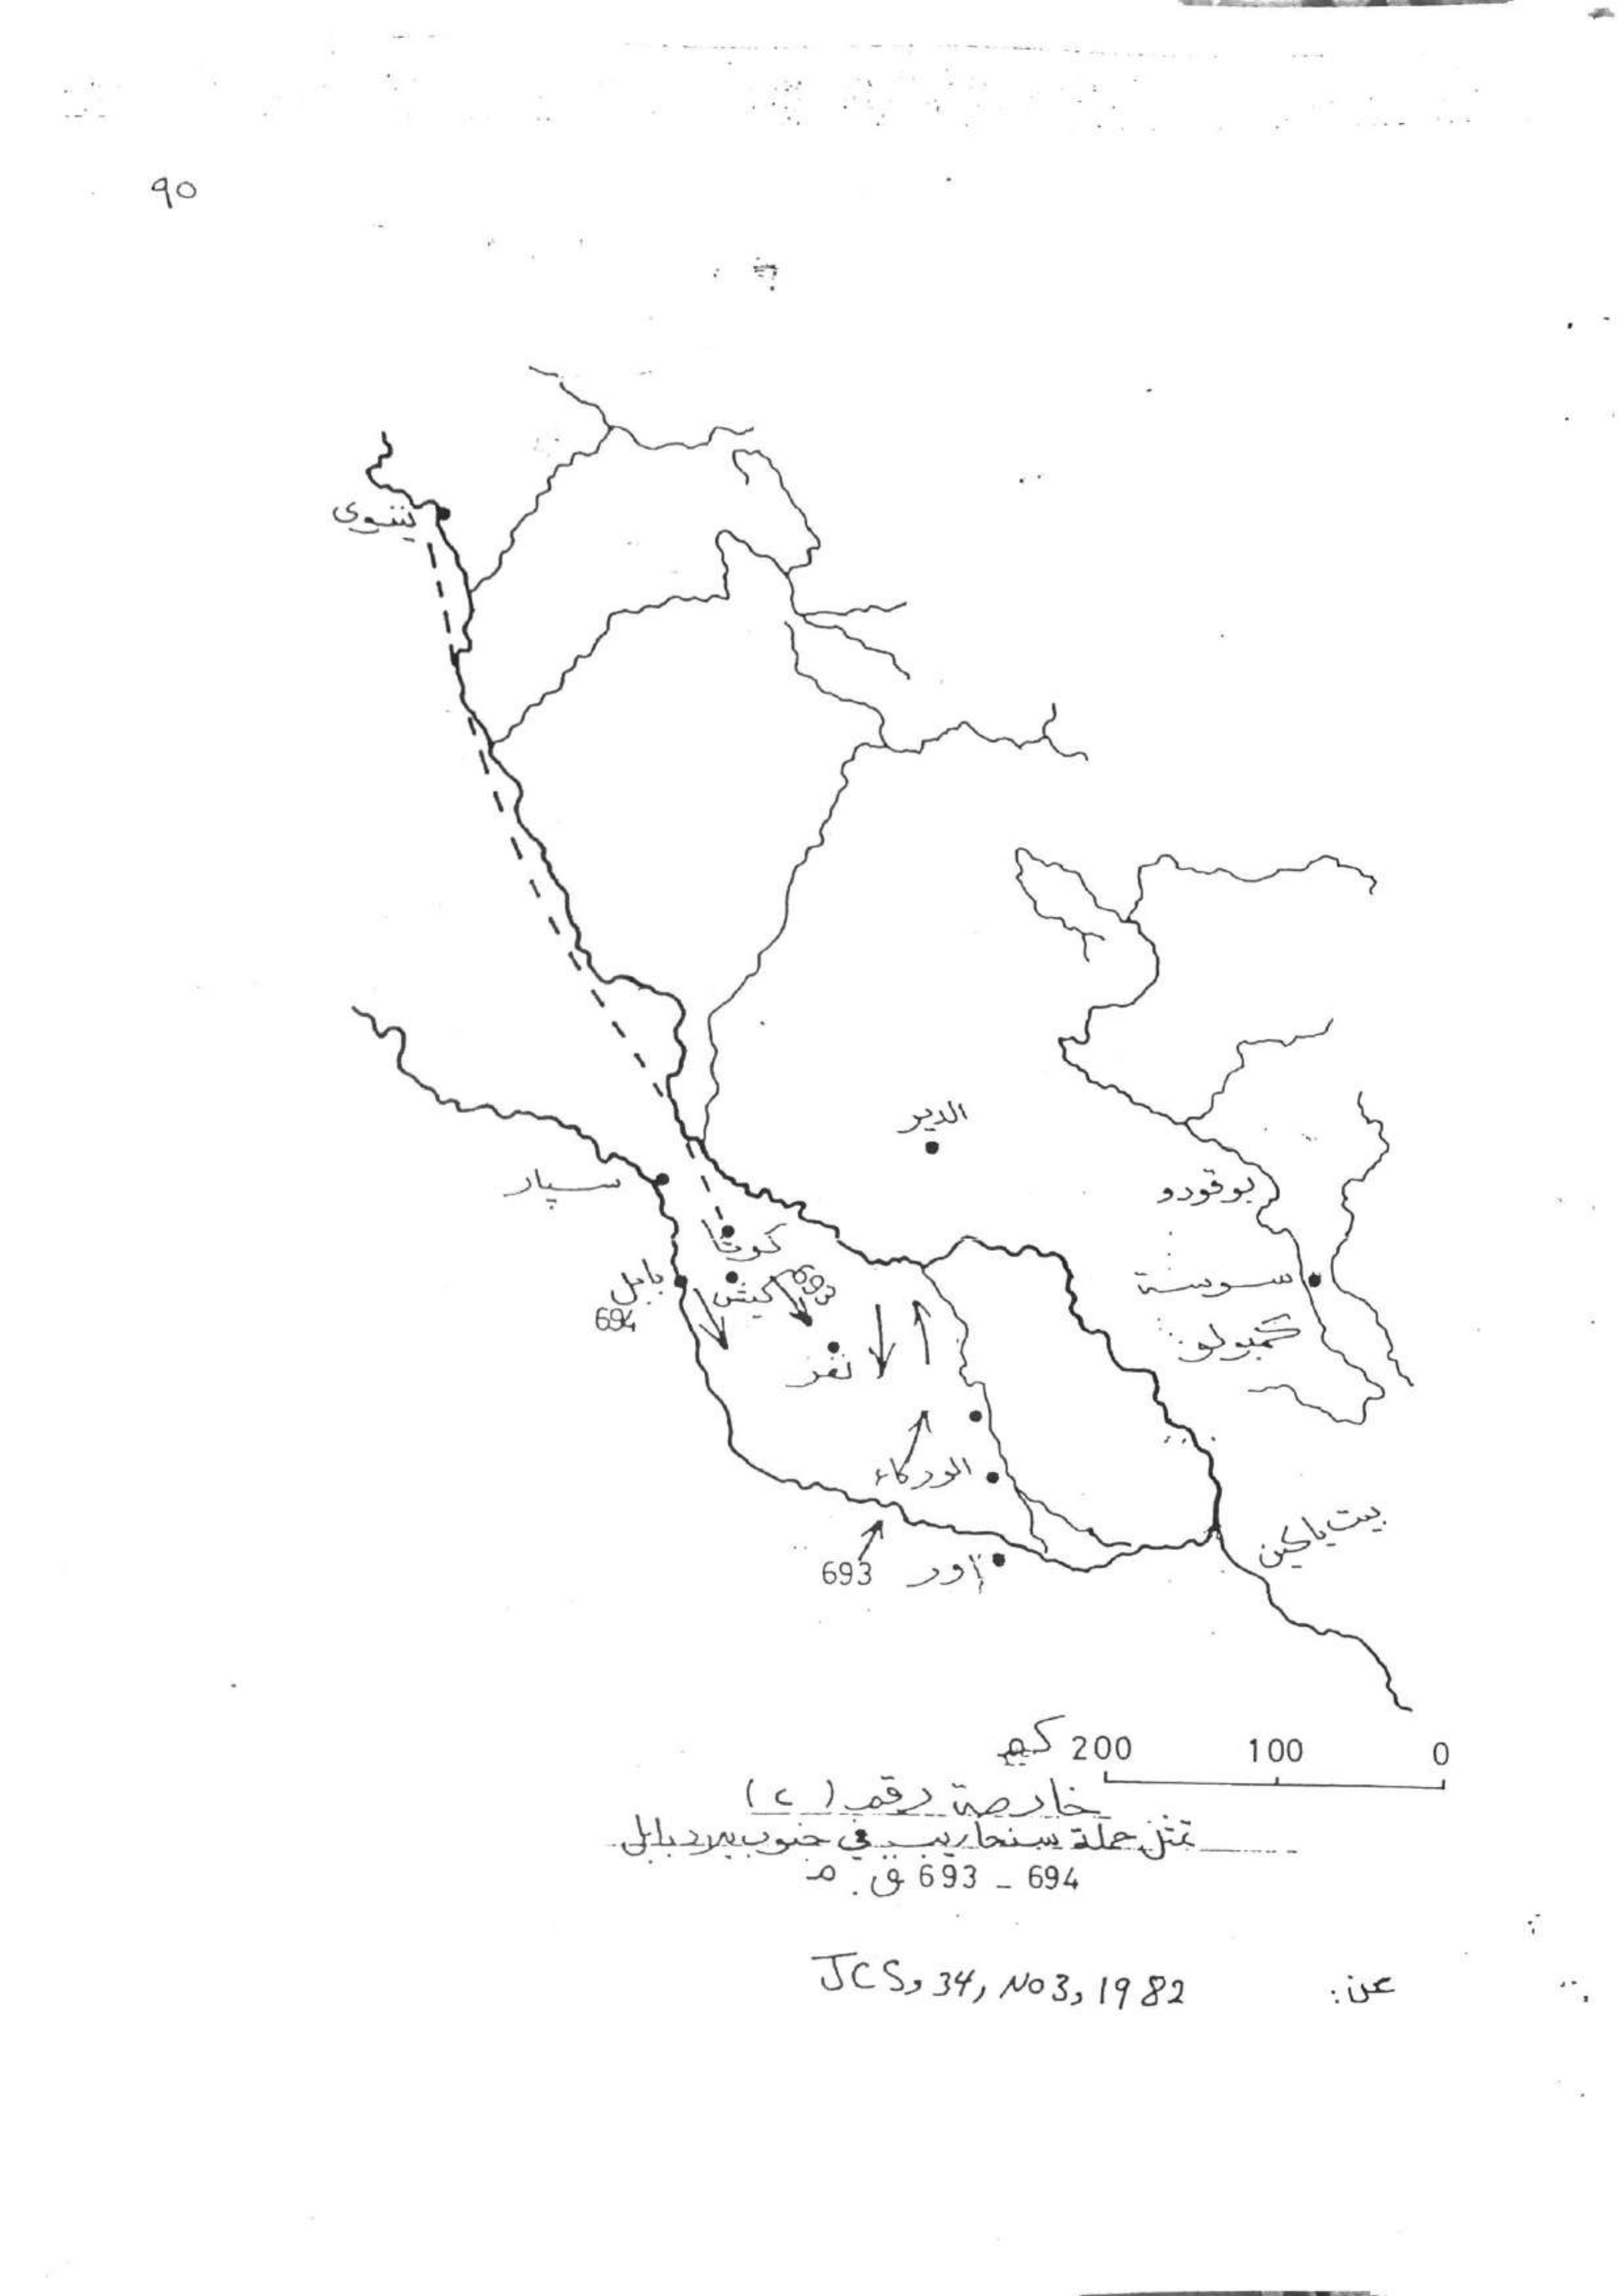 ٩٥
نينوى
الدير
سپار
بوقودو
كوثا
سوسة
بابل
كيش
693
694
گمبولو
نفر
الوركاء
بيت ياكين
693
أور
كم 200 100 0
خارطة رقم (٢)
تمثل حملة سنحاريب في جنوب بلاد بابل
694 - 693 ق.م
عن: JCS, 34, No3, 1982